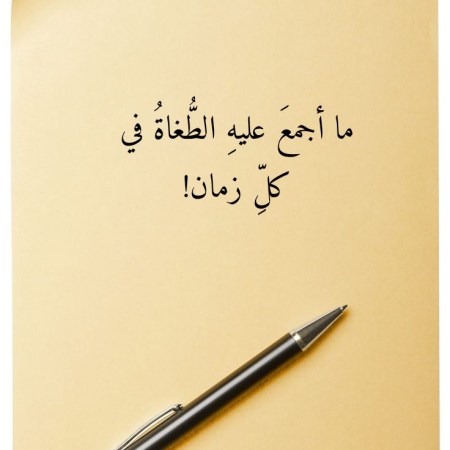 ما أجمعَ عليهِ الطُّغاةُ في
كلِّ زمان!